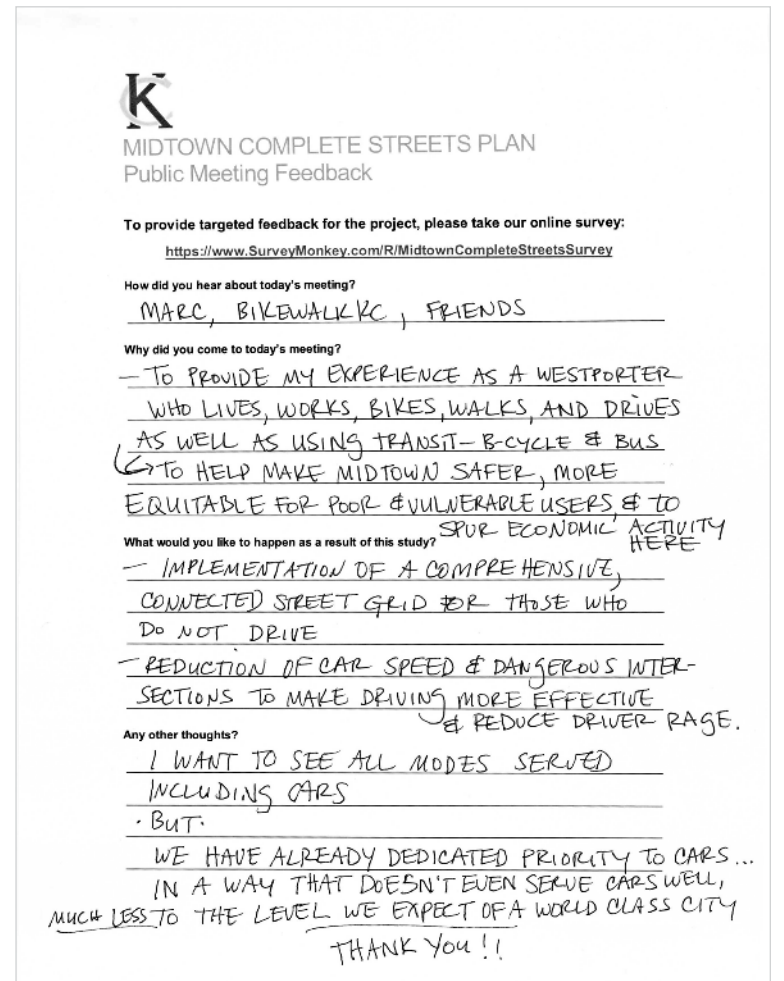 KC
MIDTOWN COMPLETE STREETS PLAN
Public Meeting Feedback
To provide targeted feedback for the project, please take our online survey:
https://www.SurveyMonkey.com/R/MidtownCompleteStreetsSurvey
How did you hear about today's meeting?
MARC, BIKEWALKKC, FRIENDS
Why did you come to today's meeting?
- TO PROVIDE MY EXPERIENCE AS A WESTPORTER
WHO LIVES, WORKS, BIKES, WALKS, AND DRIVES
AS WELL AS USING TRANSIT - B-CYCLE & BUS
→ TO HELP MAKE MIDTOWN SAFER, MORE
EQUITABLE FOR POOR & VULNERABLE USERS, & TO
SPUR ECONOMIC ACTIVITY
HERE
What would you like to happen as a result of this study?
- IMPLEMENTATION OF A COMPREHENSIVE,
CONNECTED STREET GRID FOR THOSE WHO
DO NOT DRIVE
- REDUCTION OF CAR SPEED & DANGEROUS INTER-
SECTIONS TO MAKE DRIVING MORE EFFECTIVE
& REDUCE DRIVER RAGE.
Any other thoughts?
I WANT TO SEE ALL MODES SERVED
INCLUDING CARS
· BUT ·
WE HAVE ALREADY DEDICATED PRIORITY TO CARS...
IN A WAY THAT DOESN'T EVEN SERVE CARS WELL,
MUCH LESS TO THE LEVEL WE EXPECT OF A WORLD CLASS CITY
THANK YOU!!